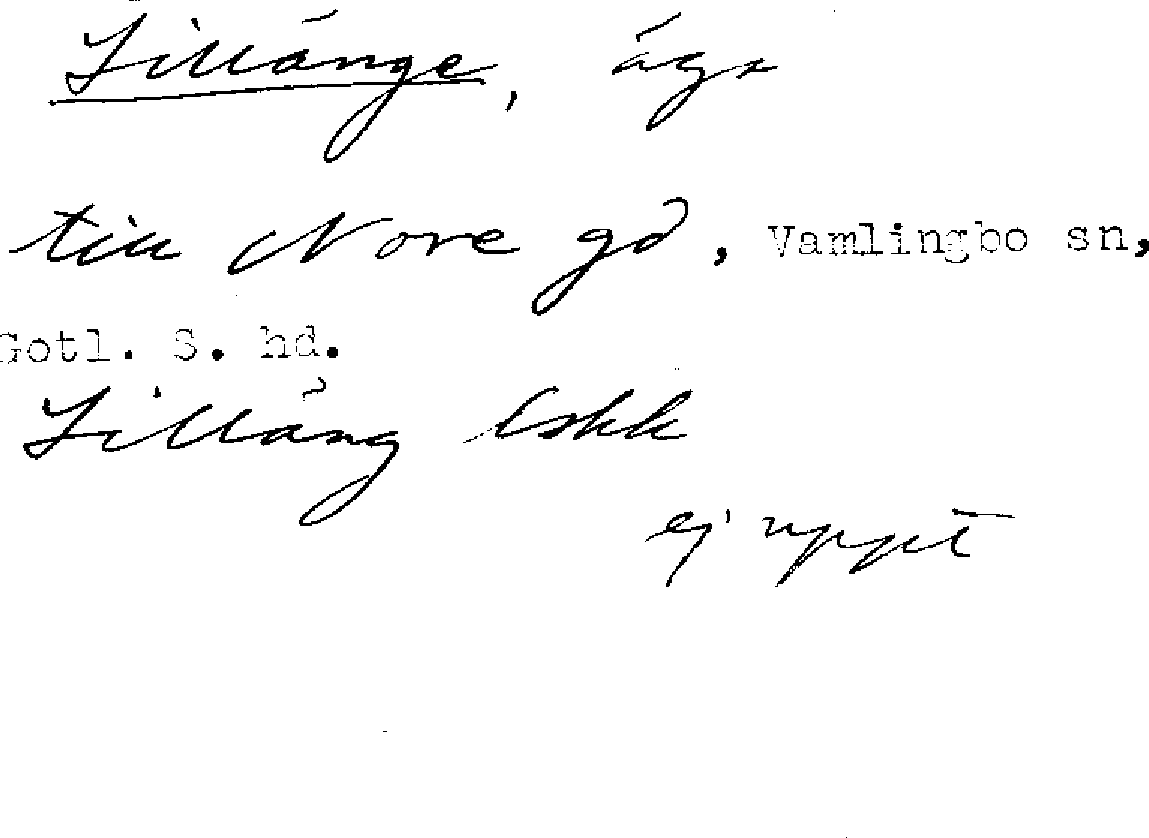 Lillänge, ägor
till Nore gd, Vamlingbo sn,
Gotl. S. hd.
Lilläng Eskk
ej uppt